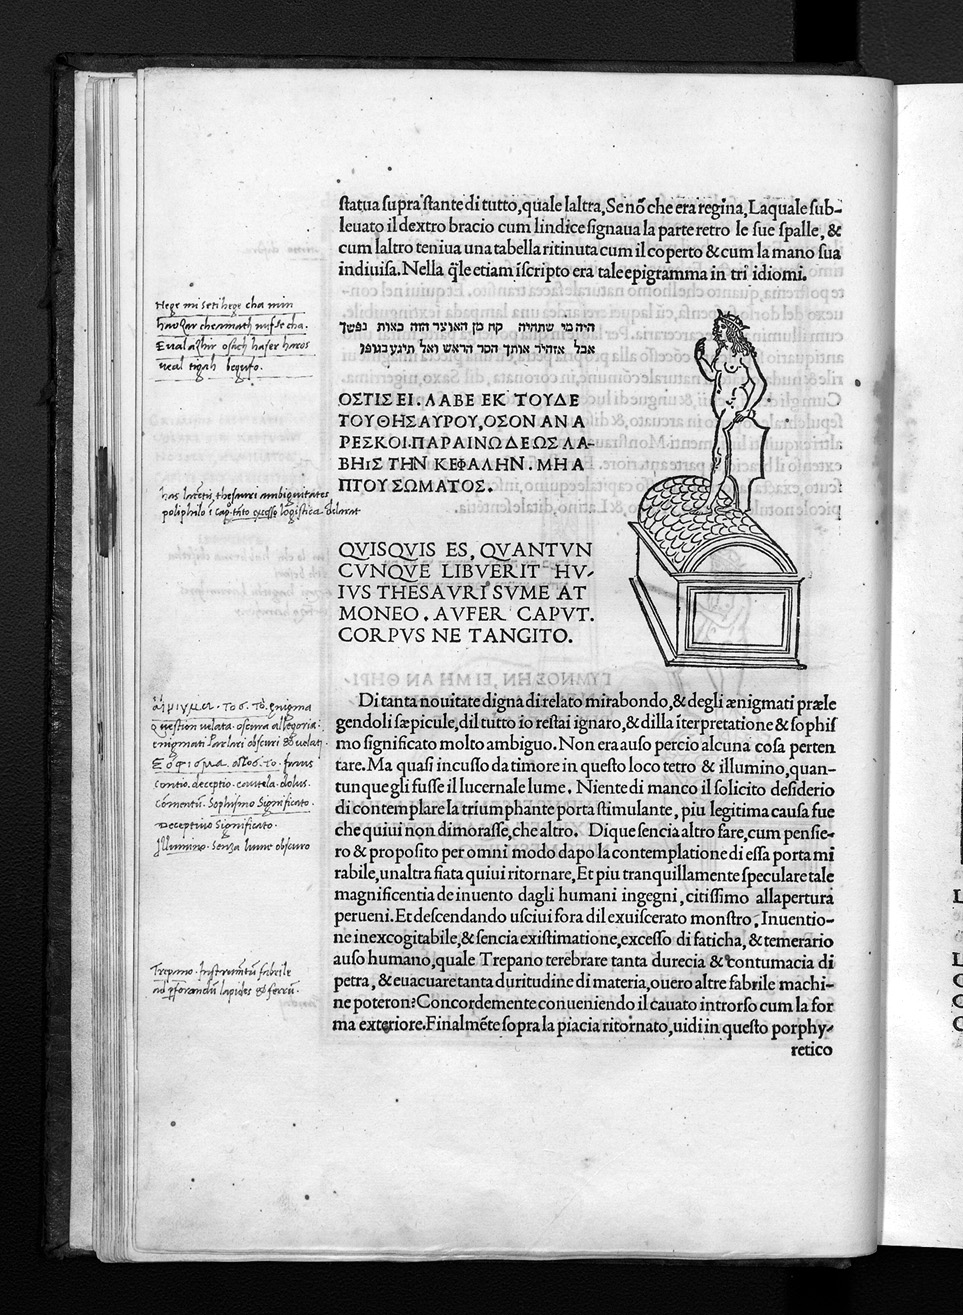 statua supra stante di tutto, quale laltra, Se nõ che era regina, La quale sub-
leuato il dextro bracio cum lindice signaua la parte retro le sue spalle, &
cum laltro teniua una tabella ritinuta cum il coperto & cum la mano sua
indiuisa. Nella q̃le etiam iscripto era tale epigramma in tri idiomi.
היה מי שתהיה קח מן האוצר הזה כאות נפשך
אבל אזהיר אותך הסר הראש ואל תיגע בגופו
ΟΣΤΙΣ ΕΙ. ΛΑΒΕ ΕΚ ΤΟΥΔΕ
ΤΟΥ ΘΗΣΑΥΡΟΥ, ΟΣΟΝ ΑΝ Α
ΡΕΣΚΟΙ. ΠΑΡΑΙΝΩ ΔΕ ΩΣ ΛΑ-
ΒΗΙΣ ΤΗΝ ΚΕΦΑΛΗΝ. ΜΗ Α
ΠΤΟΥ ΣΩΜΑΤΟΣ.
QVISQVIS ES, QVANTVN
CVNQVE LIBVERIT HV-
IVS THESAVRI SVME AT
MONEO. AVFER CAPVT.
CORPVS NE TANGITO.
Di tanta nouitate digna di relato mirabondo, & degli ænigmati præle
gendoli sæpicule, dil tutto io restai ignaro, & dilla ĩterpretatione & sophis
mo significato molto ambiguo. Non era auso percio alcuna cosa perten
tare. Ma quasi incusso da timore in questo loco tetro & illumino, quan-
tunque gli fusse il lucernale lume. Niente di manco il solicito desiderio
di contemplare la triumphante porta stimulante, piu legitima causa fue
che quiui non dimorasse, che altro. Dique sencia altro fare, cum pensie-
ro & proposito per omni modo dapo la contemplatione di essa porta mi
rabile, unaltra fiata quiui ritornare, Et piu tranquillamente speculare tale
magnificentia de inuento dagli humani ingegni, citissimo allapertura
perueni. Et descendando usciui fora dil exuiscerato monstro, Inuentio-
ne inexcogitabile, & sencia existimatione, excesso di faticha, & temerario
auso humano, quale Trepano terebrare tanta durecia & contumacia di
petra, & euacuare tanta duritudine di materia, ouero altre fabrile machi-
ne poteron? Concordemente conueniendo il cauato introrso cum la for
ma exteriore. Finalmẽte sopra la piacia ritornato, uidi in questo porphy-
retico
Hege mi seti hege cha min
hauzar chemath nafsecha.
E ual azhir osich hafer haros
ueal tigah begufo.
has latẽtis thesauri ambiguitates
Quæstion uelata. oscura allegoria:
enigmati parlari obscuri & uelati
contio. deceptio. cautela. dolus.
comentũ. Sophismo Significato.
Deceptiuo Significato.
Illumino. Senza lume obscuro
Trepano. Instrumẽtũ fabrile
ad pforandũ lapides & ferrũ.